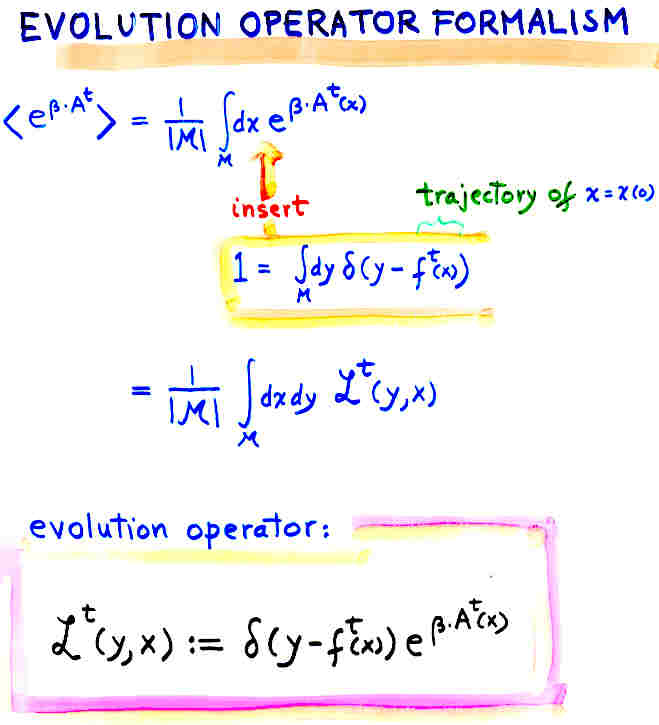 EVOLUTION OPERATOR FORMALISM
⟨e^{β·A^t}⟩ = 1/|M| ∫_M dx e^{β·A^t(x)}
insert
trajectory of x = x(0)
1 = ∫_M dy δ(y - f^t(x))
= 1/|M| ∫_M dx dy ℒ^t(y,x)
evolution operator:
ℒ^t(y,x) := δ(y - f^t(x)) e^{β·A^t(x)}